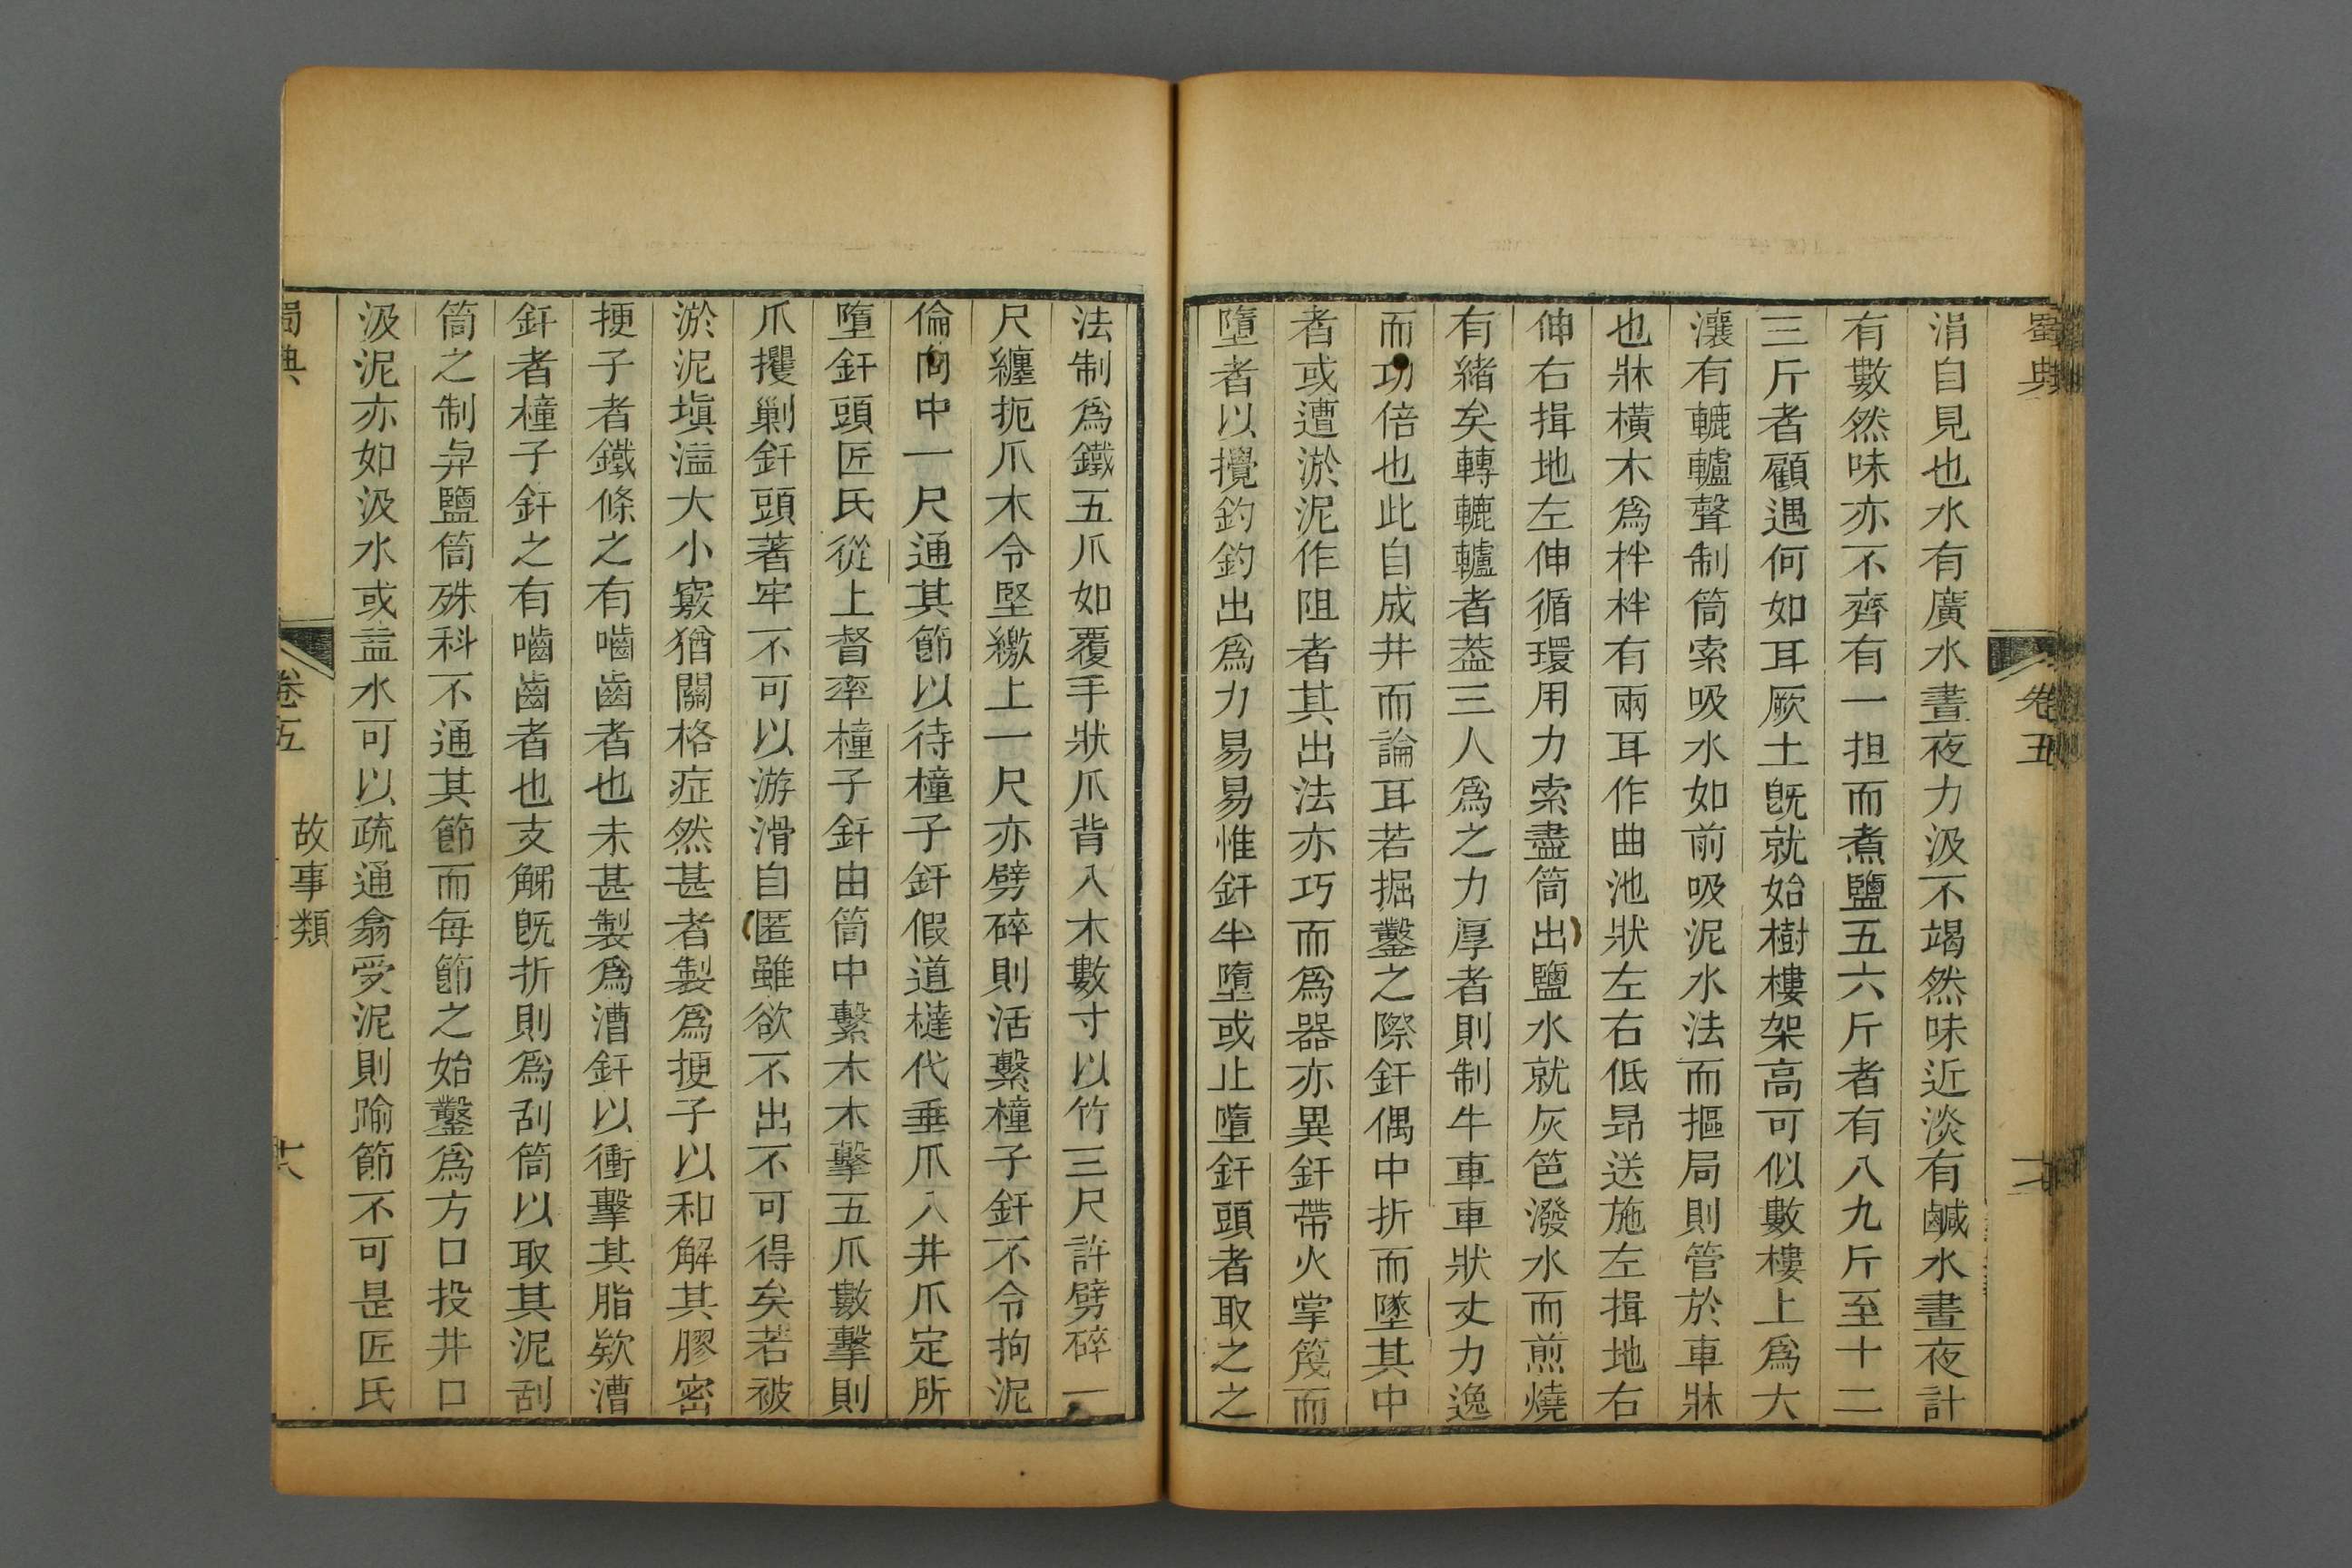 蜀典
卷五
涓自見也水有廣水晝夜力汲不竭然味近淡有鹹水晝夜計
有數然味亦不齊有一担而煮鹽五六斤者有八九斤至十二
三斤者顧遇何如耳厥土旣就始樹樓架高可似數樓上爲大
瀼有轆轤聲制筒索吸水如前吸泥水法而摳局則管於車牀
也牀橫木爲柈柈有兩耳作曲池狀左右低昻送施左揖地右
伸右揖地左伸循環用力索盡筒出鹽水就灰笆潑水而煎燒
有緒矣轉轆轤者葢三人爲之力厚者則制牛車車狀丈力逸
而功倍也此自成井而論耳若掘鑿之際釬偶中折而墜其中
者或遭淤泥作阻者其出法亦巧而爲器亦異釬帶火掌篾而
墮者以攪釣釣出爲力易易惟釬半墮或止墮釬頭者取之之
法制爲鐵五爪如覆手狀爪背入木數寸以竹三尺許劈碎一
尺纏扼爪木令堅繳上一尺亦劈碎則活繫橦子釬不令拘泥
倫向中一尺通其節以待橦子釬假道㯐代垂爪入井爪定所
墮釬頭匠氏從上督率橦子釬由筒中繫木木擊五爪數擊則
爪攫剿釬頭著牢不可以游滑自匿雖欲不出不可得矣若被
淤泥塡溘大小竅猶關格症然甚者製爲挭子以和解其膠密
挭子者鐵條之有嚙齒者也未甚製爲漕釬以衝擊其脂欵漕
釬者橦子釬之有嚙齒者也支觧旣折則爲刮筒以取其泥刮
筒之制㒷鹽筒殊科不通其節而每節之始鑿爲方口投井口
汲泥亦如汲水或盂水可以疏通翕受泥則踰節不可是匠氏
蜀典
卷五
故事類
十八